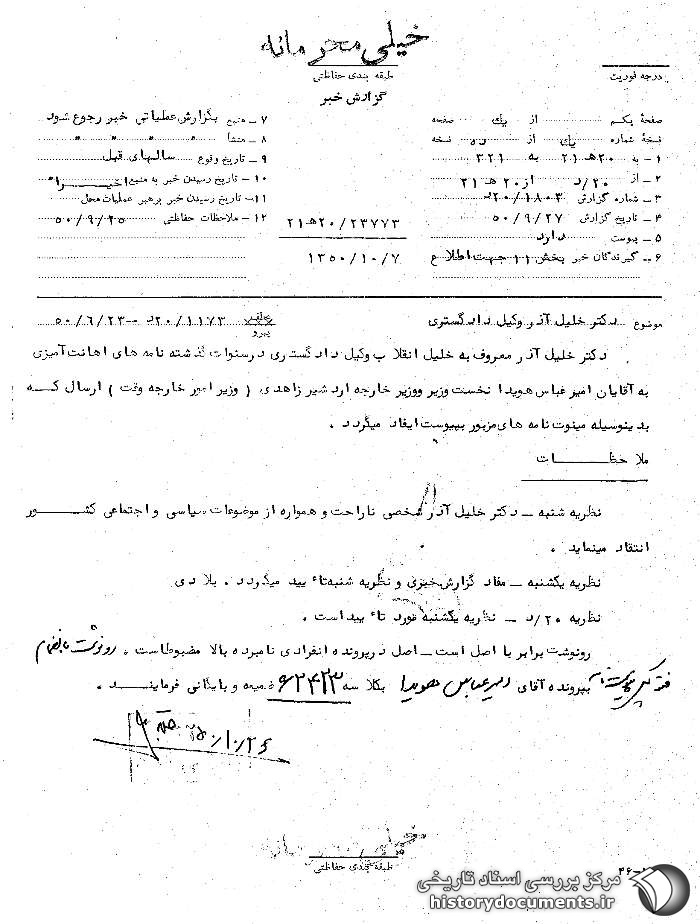 خیلی محرمانه
درجه فوریت
طبقه بندی حفاظتی
گزارش خبر
صفحهٔ یکم از یک صفحه
نسخهٔ شماره یک از ده نسخه
۱ – به ۲۰هـ ۲۱ به ۳۲۱
۲ – از ۲۰/د از ۲۰هـ ۲۱
۳ – شماره گزارش ۲۰/۱۸۰۳د
۴ – تاریخ گزارش ۵۰/۹/۲۷
۵ – پیوست دارد
۶ – گیرندگان خبر بخش ۱۱ جهت اطلاع
۷ – منبع بگزارش عملیاتی خبر رجوع شود
۸ – منشأ " " " "
۹ – تاریخ وقوع سالهای قبل
۱۰ – تاریخ رسیدن خبر به منبع اخیراً
۱۱ – تاریخ رسیدن خبر برهبر عملیات محل
۱۲ – ملاحظات حفاظتی ۵۰/۹/۲۵
۲۰/۲۳۷۷۳هـ ۲۱
۱۳۵۰/۱۰/۷
موضوع دکتر خلیل آذر وکیل دادگستری عطف پیرو ۲۰/۱۱۷۳د –۵۰/۶/۲۳
دکتر خلیل آذر معروف به خلیل انقلاب وکیل دادگستری درسنوات گذشته نامه های اهانت آمیزی
به آقایان امیرعباس هویدا نخست وزیر ووزیر خارجه اردشیر زاهدی ( وزیر امور خارجه وقت ) ارسال کـــه
بدینوسیله مینوت نامه های مزبور بپیوست ایفاد میگردد .
ملاحظـــــات
نظریه شنبه – دکتر خلیل آذر شخصی ناراحت و همواره از موضوعات سیاسی و اجتماعی کشـــور
انتقاد مینماید .
نظریه یکشنبه – مفاد گزارش خبری و نظریه شنبه تاٴیید میگردد . بلادی
نظریه ۲۰/د – نظریه یکشنبه مورد تاٴیید است .
رونوشت برابر با اصل است – اصل در پرونده انفرادی نامبرده بالا مضبوطاست . رونوشت بانضمام
فتوکپی پیوست بپرونده آقای امیرعباس هویدا بکلاسه ۶۲۴۲۳ ضمیمه و بایگانی فرمایند .
۵۰/۱۰/۲۶
خیلی محرمانه
طبقه بندی حفاظتی
مرکز بررسی اسناد تاریخی
historydocuments.ir